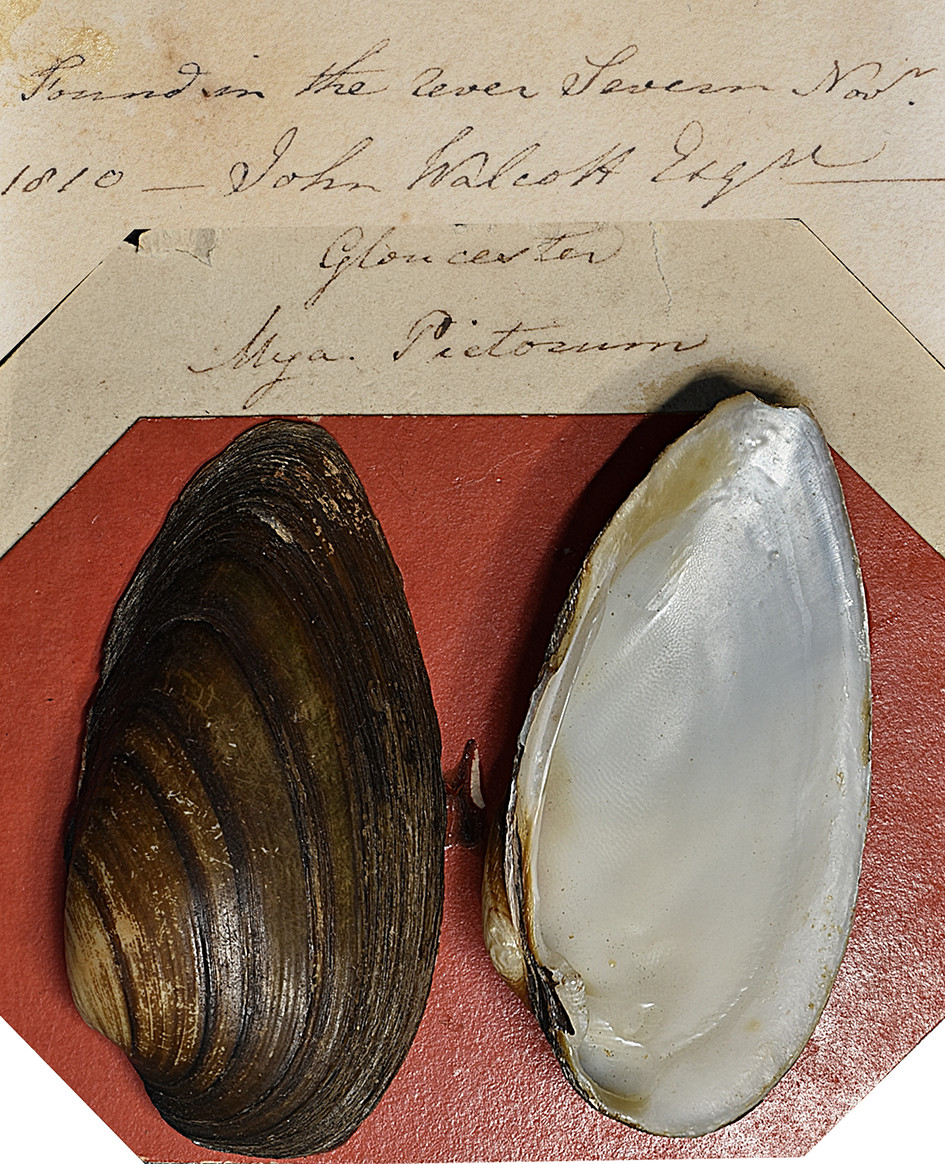 Found in the rever Severn Novr.
1810 — John Walcott Esqr
Gloucester
Mya. Pictorum